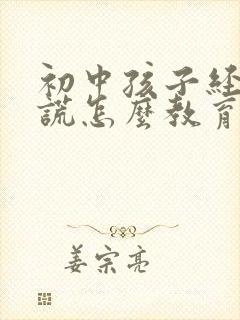 初中孩子经
谎怎麼教育
姜宗亮